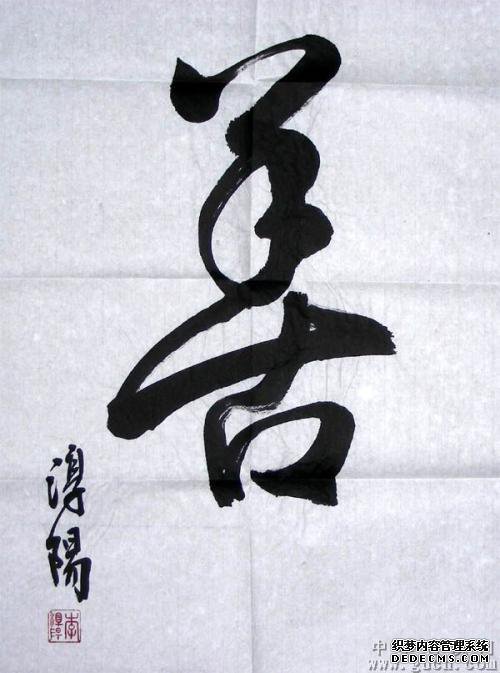 善
淳陽
织梦内容管理系统
DEDECMS.COM